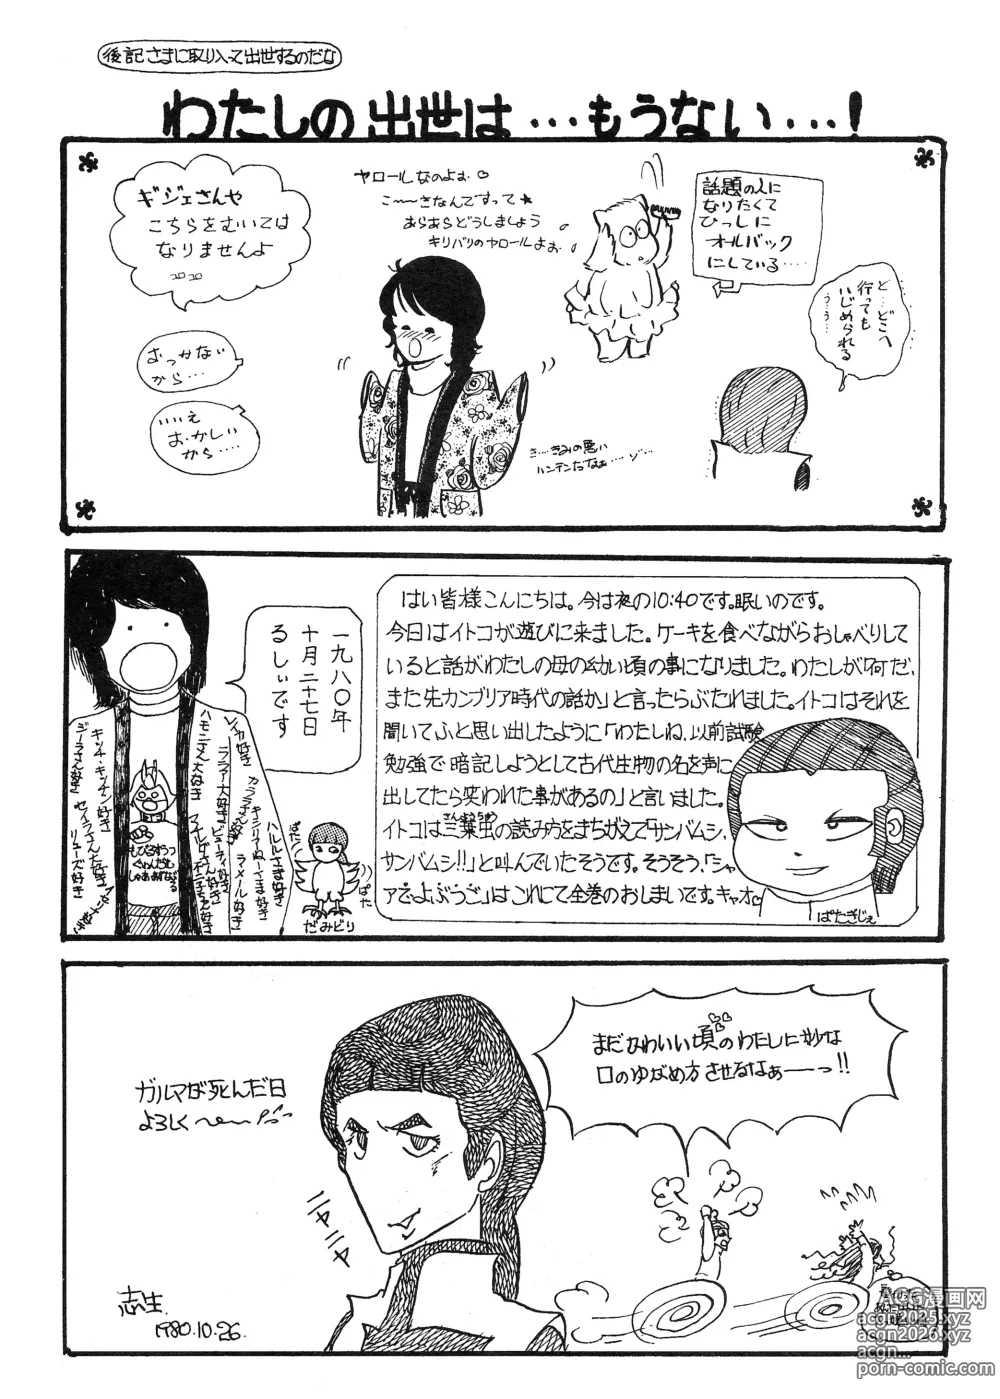 後記さまに取り入って出世するのだな
わたしの出世は…もうない…!
話題の人に
なりたくて
ひっしに
オールバック
にしている……
ヤロールなのよぉ♡
こ〜〜さなんですって★
あらあらどうしましょう
キリバリのヤロールよぉ。
ギジェさんや
こちらをむいては
なりませんよ
ど…どこへ
行っても
いじめられる
う…う…
おっかない
から…
いいえ
おかしい
から…
き…きみの悪い
ハンテンだなぁ……ゾ…
一九八〇年
十月二十七日
るしぃです
はい皆様こんにちは。今は夜の10:40です。眠いのです。
今日はイトコが遊びに来ました。ケーキを食べながらおしゃべりして
いると話がわたしの母の幼い頃の事になりました。わたしが「何だ、
また先カンブリア時代の話か」と言ったらぶたれました。イトコはそれを
聞いてふと思い出したように「わたしね、以前試験
勉強で暗記しようとして古代生物の名を声に
出してたら笑われた事があるの」と言いました。
イトコは三葉虫の読み方をまちがえて「サンバムシ、
サンバムシ!!」と叫んでいたそうです。そうそう、「シャ
アでよぶうご」はこれにて全巻のおしまいです。キャオ♡
ぱたぎじぇ
だみどり
ぱた
ハモニさん大好き
キッチ・キッチン好き
ジーラさん好き
セイラさん大好き
リューズ好き
ララァー大好き
ビューティ好き
ラメール好き
ハルルさま好き
まだかわいい頃のわたしに妙な
口のゆがめ方させるなぁ――っ!!
ガルマが死んだ日
よろしく〜〜
ニヤニヤ
志生
1980.10.26.
ACG漫画网
acgn2025.xyz
acgn2026.xyz
acgn...
porn-comic.com